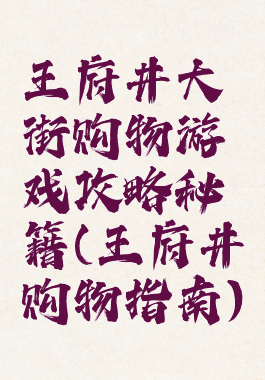 王府井大
街购物游
戏攻略秘
籍(王府井
购物指南)